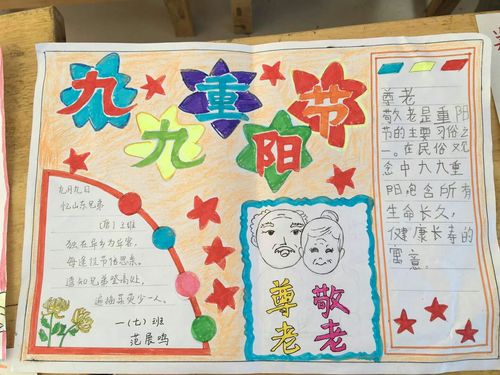 九九重阳节
九月九日
忆山东兄弟
(唐)王维
独在异乡为异客,
每逢佳节倍思亲。
遥知兄弟登高处,
遍插茱萸少一人。
一(七)班
范晨鸣
尊老
敬老
尊老
敬老是重阳
节的主要习俗之
一。在民俗观
念中九九重
阳包含所有
生命长久,
健康长寿的
寓意。